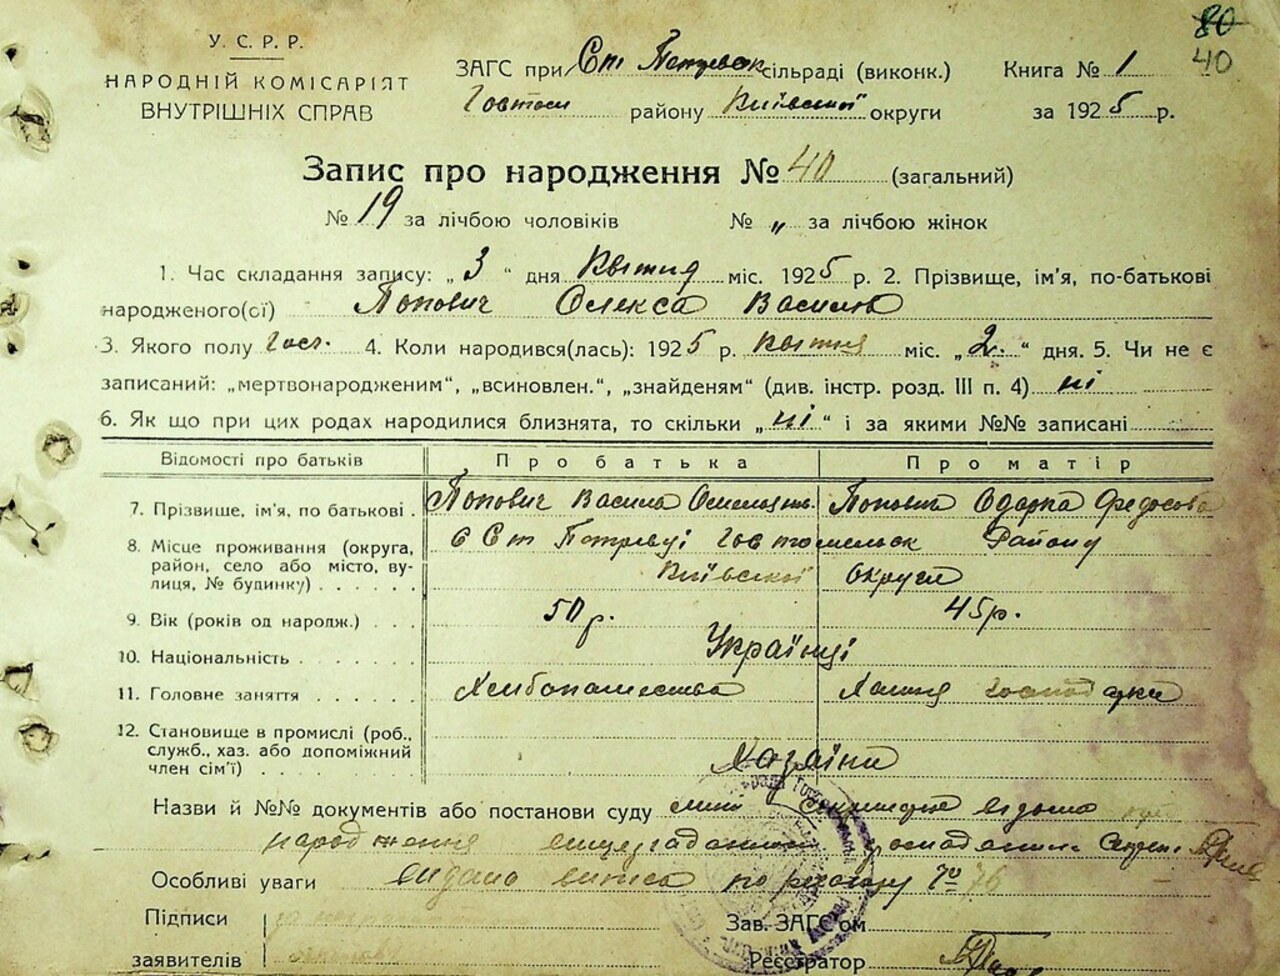 80
40
У. С. Р. Р.
НАРОДНІЙ КОМІСАРІЯТ
ВНУТРІШНІХ СПРАВ
ЗАГС при Ст Петрівськ сільраді (виконк.) Книга № 1
Гостом району Київської округи за 1925 р.
Запис про народження № 40 (загальний)
№ 19 за лічбою чоловіків № „ за лічбою жінок
1. Час складання запису: „ 3 “ дня Квітня міс. 1925 р. 2. Прізвище, ім'я, по-батькові
народженого(ої) Попович Олекса Василів
3. Якого полу 4. Коли народився(лась): 1925 р. Квітня міс. „ 2. “ дня. 5. Чи не є
записаний: „мертвонародженим“, „всиновлен.“, „знайденям“ (див. інстр. розд. III п. 4) ні
6. Як що при цих родах народилися близнята, то скільки „ ні “ і за якими №№ записані
Відомості про батьків Про батька Про матір
7. Прізвище, ім'я, по батькові . Попович Василь Попович Одарка Федосова
8. Місце проживання (округа, в Ст Петрівці Гостомельск Району
район, село або місто, ву-
лиця, № будинку) . . . . . . Київської округи
9. Вік (років од народж.) . . . 50 р. 45 р.
10. Національність . . . . . . . Українці
11. Головне заняття . . . . . Хліборобство Хатня господарка
12. Становище в промислі (роб.,
служб., хаз. або допоміжний
член сім'ї) . . . . . . . . . Хазяїни
Назви й №№ документів або постанови суду
народження
Особливі уваги видано виписа по реєстру № 76
Підписи Зав. ЗАГС'ом
заявителів Реєстратор